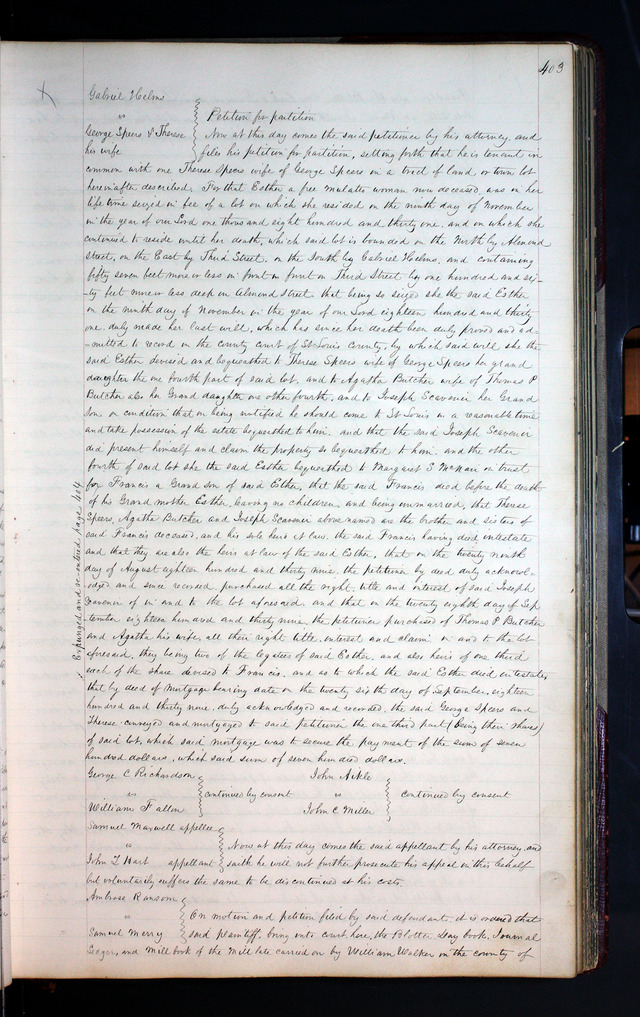 403
Gabriel Helms
vs
Petition for partition
George Speers & Therese
his wife
Now at this day comes the said petitioner by his attorney and
files his petition for partition, setting forth that he is tenant in
common with one Therese Speers wife of George Speers in a tract of land or town lot
hereinafter described. For that Esther a free mulatto woman now deceased was in her
life time seized in fee of a lot on which she resided on the ninth day of November
in the year of our Lord one thousand eight hundred and thirty one, and on which she
continued to reside until her death, which said lot is bounded on the North by Almond
street, on the East by Third Street, on the South by Gabriel Helms, and containing
fifty seven feet more or less in front in front on Third Street by one hundred and six-
-ty feet more or less deep on Almond street that being so seized she the said Esther
on the ninth day of November in the year of our Lord eighteen hundred and thirty
one, duly made her last will, which has since her death been duly proved and ad-
-mitted to record in the county court of St Louis County, by which said will she the
said Esther devised and bequeathed to Therese Speers wife of George Speers her grand
daughter the one fourth part of said lot, and to Agatha Butcher wife of Thomas P
Butcher also her Grand daughter one other fourth, and to Joseph Scavener her Grand
son on condition that on being notified he should come to St Louis in a reasonable time
and take possession of the estate bequeathed to him, and that the said Joseph Scavener
did present himself and claim the property so bequeathed to him, and the other
fourth of said lot she the said Esther bequeathed to Margaret S McNair in trust
for Francis a Grand son of said Esther, that the said Francis died before the death
of his Grand mother Esther leaving no children, and being unmarried, that Therese
Speers, Agatha Butcher and Joseph Scavener above named are the brother and sisters of
said Francis deceased, and his sole heirs at law, the said Francis having died intestate
and that they are also the heirs at law of the said Esther, that on the twenty ninth
day of August eighteen hundred and thirty nine, the petitioner by deed duly acknowl-
-edged and since recorded purchased all the right, title and interest of said Joseph
Scavener of in and to the lot aforesaid, and that on the twenty eighth day of Sep
-tember eighteen hundred and thirty nine, the petitioner purchased of Thomas P Butcher
and Agatha his wife, all their right title, interest and claim in and to the lot
aforesaid, they being two of the legatees of said Esther, and also heirs of one third
each of the share devised to Francis, and as to which the said Esther died intestate,
that by deed of mortgage bearing date on the twenty sixth day of September, eighteen
hundred and thirty nine, duly acknowledged and recorded, the said George Speers and
Therese conveyed and mortgaged to said petitioner the one third part (being their shares)
of said lot, which said mortgage was to secure the payment of the sum of seven
hundred dollars, which said sum of seven hundred dollars.
Expunged and re-entered page 404
George C Richardson
vs
William Fallon
continued by consent
John Aikle
vs
John C Miller
continued by consent
Samuel Maxwell appellee
vs
John T Hart appellant
Now at this day comes the said appellant by his attorney, and
saith he will not further prosecute his appeal in this behalf
but voluntarily suffers the same to be discontinued at his costs.
Ambrose Ransom
vs
Samuel Merry
On motion and petition filed by said defendant, it is ordered that
said plaintiff, bring into court here, the Blotter, Day book, Journal
Leager, and Mill book of the Mill late carried on by William Walker in the county of